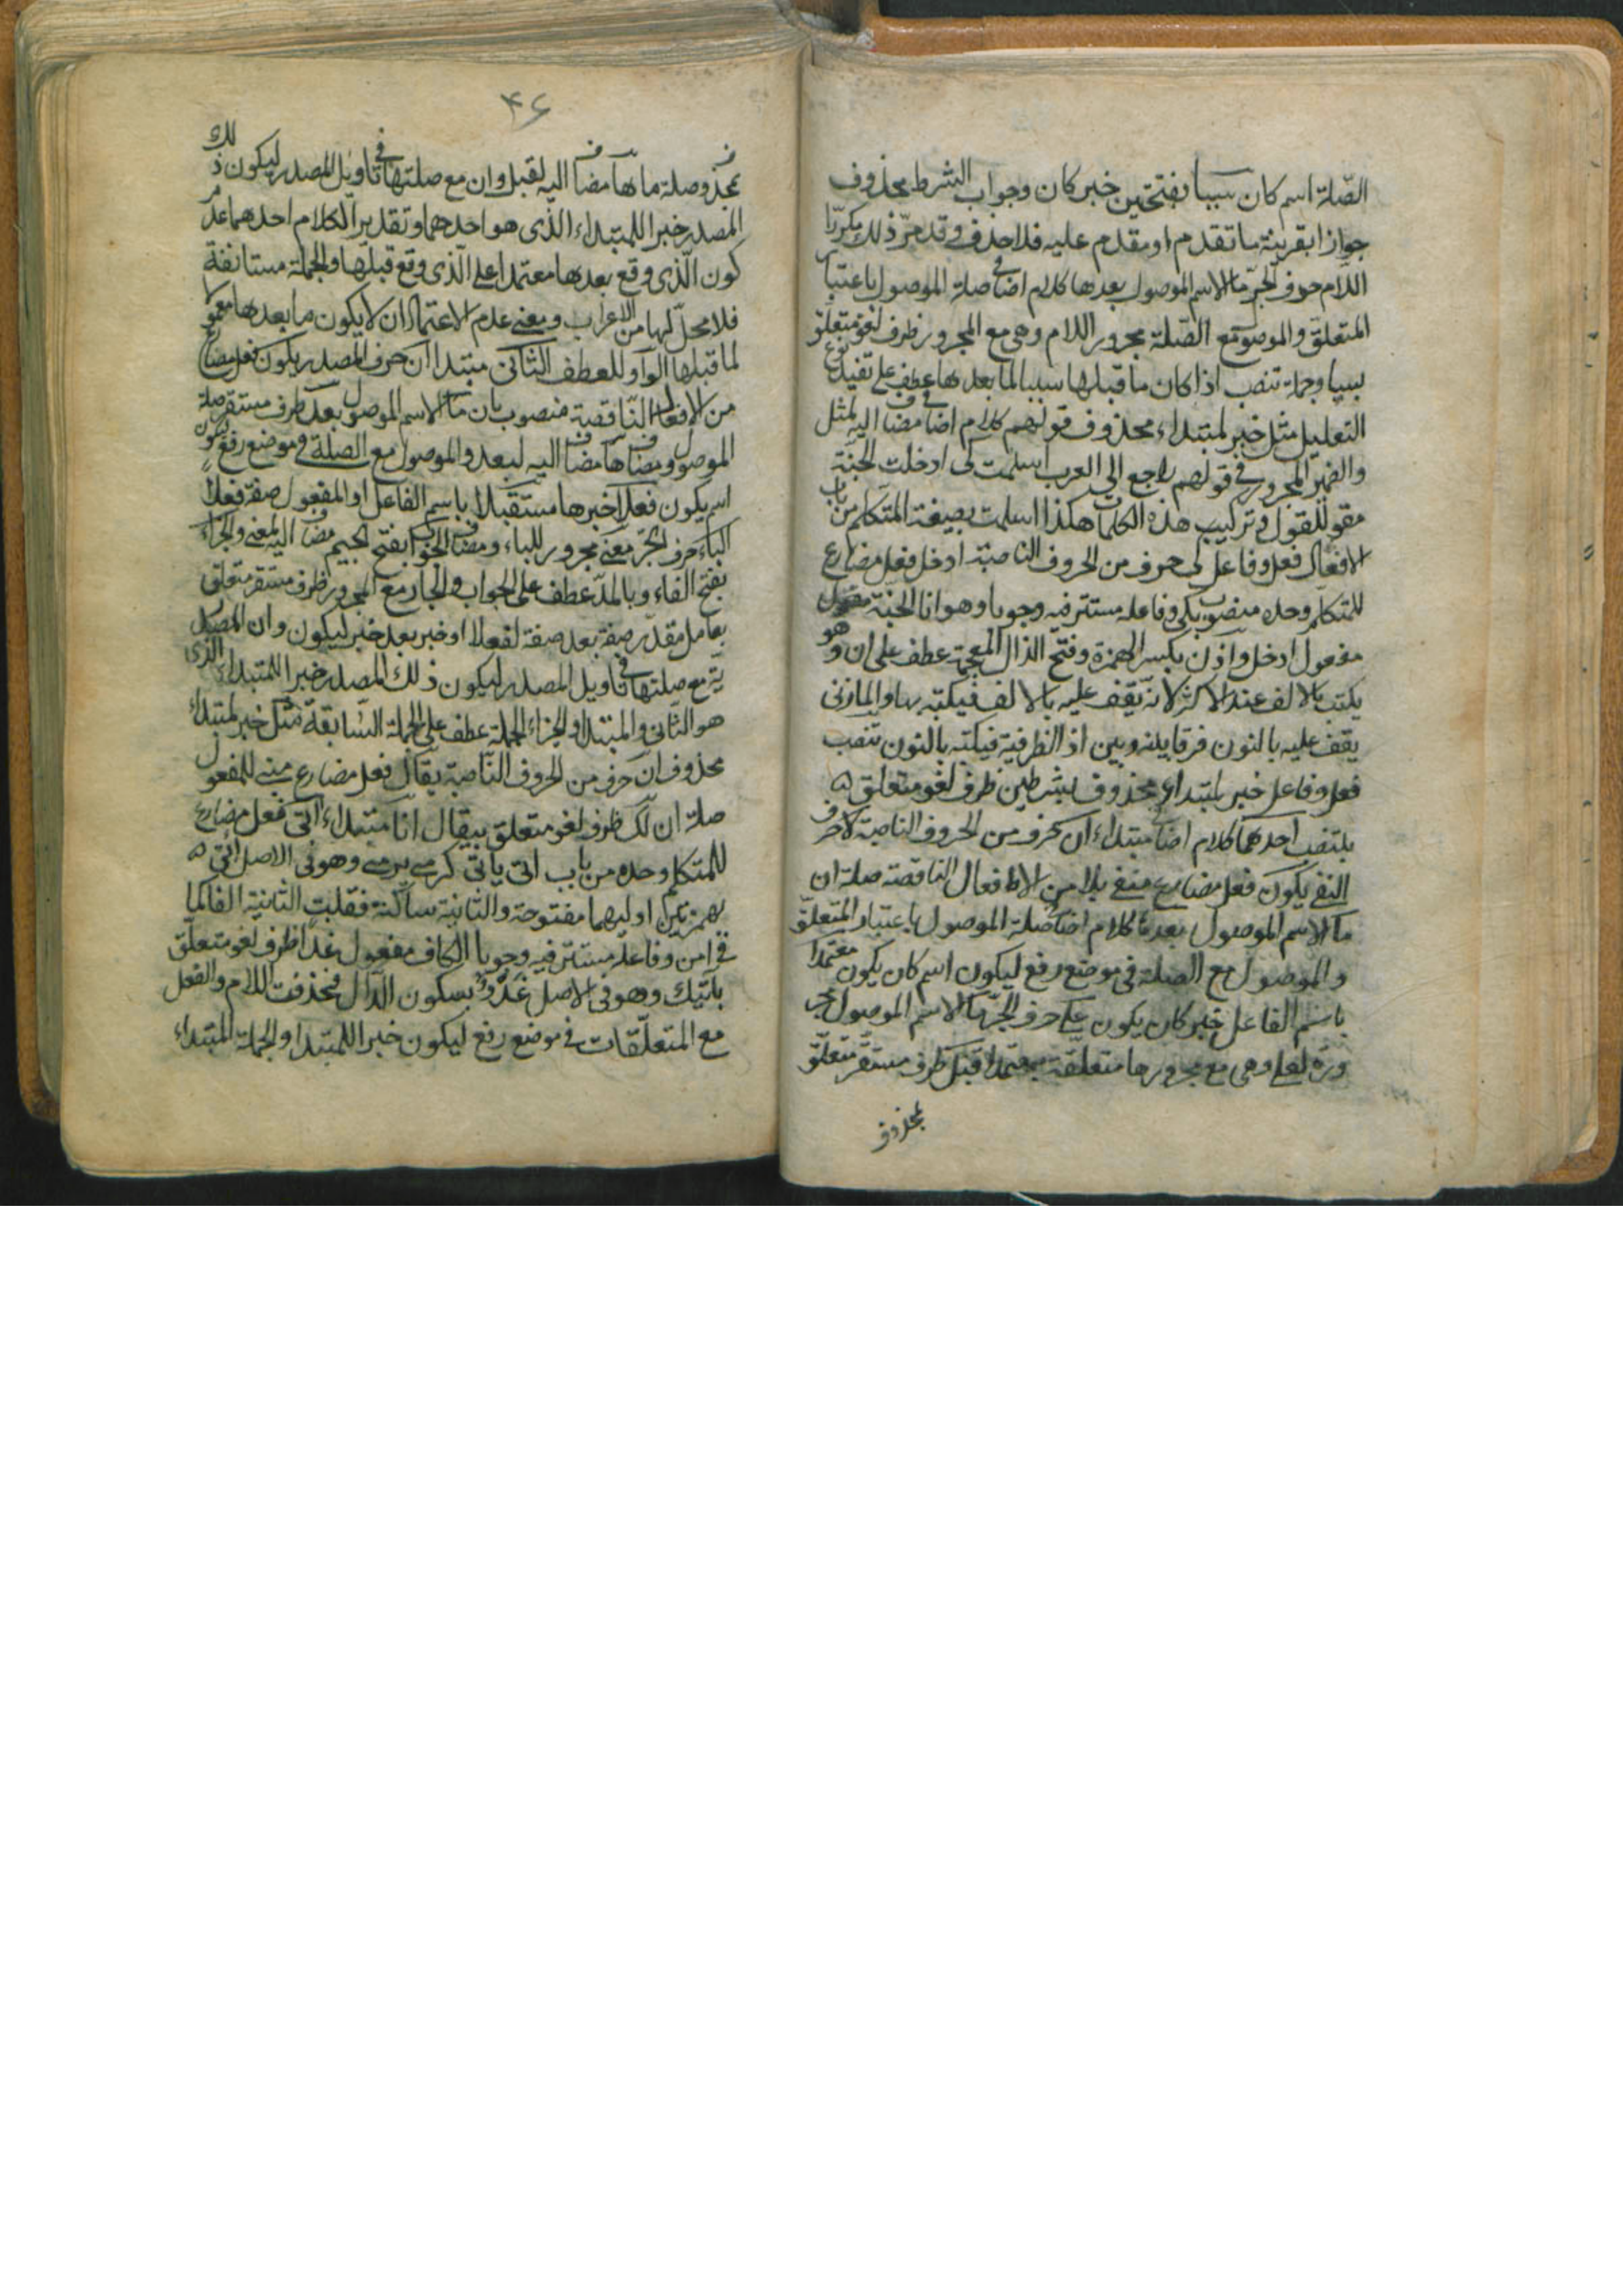 الصّلة اسم كان سببا بفتحتين خبر كان وجواب الشرط محذوف
جوازا بقرينة ما تقدم او مقدم عليه فلا حذف وقد مرّ ذلك مكررّا
اللام حرف الجرّ ما الاسم الموصول بعدها كلام اضافي صلة الموصول باعتبار
المتعلّق والموصول مع الصّلة مجرور اللام وهي مع المجرور ظرف لغو متعلّق
سببا وجملة تنصب اذا كان ما قبلها سببا لما بعدها عطف على تفيد نوع
التعليل مثل خبر لمبتداء محذوف قولهم كلام اضافي مضاف اليه لمثل
والضمير المجرور في قولهم راجع الى العرب اسلمت كى ادخلت الجنّة
مقول للقول وتركيب هذه الكلمات هكذا اسلمت بصيغة المتكلم من باب
الافعال فعل وفاعل كى حرف من الحروف الناصبة ادخل فعل مضارع
للمتكلّم وحده منصوب بكى وفاعله مستتر فيه وجوبا وهو انا الجنّة
مفعول ادخل واذن بكسر الهمزة وفتح الذال المعجمة عطف على ان وهو
يكتب بالالف عند الاكثر لانه يقف عليه بالالف فيكتبه بها والمازنى
يقف عليه بالنون فرقا بينه وبين اذ الظرفية فيكتبه بالنون تنصب
فعل وفاعل خبر لمبتداء محذوف بشرطين ظرف لغو متعلق
بتنصب احدهما كلام اضافي مبتداء ان حرف من الحروف الناصبة لا حرف
النفى يكون فعل مضارع منفى بلا من الافعال الناقصة صلة ان
ما الاسم الموصول بعدها كلام اضافي صلة الموصول باعتبار المتعلّق
والموصول مع الصلة فى موضع رفع ليكون اسم كان يكون معتمدا
باسم الفاعل خبر كان يكون على حرف الجرّ ما الاسم الموصول مجر
وره لعلى وهى مع مجرورها متعلّقة بمعتمدا قبل ظرف مستقرّ متعلّق
بمحذوف
۴۶
بمحذوف صلة ما ها مضاف اليه لقبل وان مع صلتها فى تاويل المصدر ليكون ذلك
المصدر خبرا للمبتداء الذى هو احدهما وتقدير الكلام احدهما عدم
كون الّذى وقع بعدها معتمدا على الّذى وقع قبلها والجملة مستانفة
فلا محلّ لها من الاعراب ومعنى عدم الاعتماد ان لا يكون ما بعدها معمولا
لما قبلها الواو للعطف الثانى مبتدا ان حرف المصدر يكون فعل مضارع
من الافعال النّاقصة منصوب بان ما الاسم الموصول بعد ظرف مستقر صلة
الموصول ومضاف ها مضاف اليه لبعد والموصول مع الصلة فى موضع رفع ليكون
اسم يكون فعلا خبرها مستقبلا باسم الفاعل او المفعول صفة فعلا
الباء حرف الجرّ معنى مجرور للباء ومضاف الجواب بفتح الجيم مضاف اليه لمعنى والجزاء
بفتح الفاء وبالمدّ عطف على الجواب والجار مع المجرور ظرف مستقر متعلق
بعامل مقدّر صفة بعد صفة لفعلا او خبر بعد خبر ليكون وان المصدر
ية مع صلتها فى تاويل المصدر ليكون ذلك المصدر خبرا للمبتداء الذى
هو الثانى والمبتدا والجزاء الجملة عطف على الجملة السّابقة مثل خبر لمبتداء
محذوف ان حرف من الحروف النّاصبة يقال فعل مضارع مبنى للمفعول
صلة ان لك ظرف لغو متعلق بيقال انا مبتداء آتى فعل مضارع
للمتكلم وحده من باب اتى ياتى كرمى يرمى وهو فى الاصل أأتى
بهمزتين اوليهما مفتوحة والثانية ساكنة فقلبت الثانية الفا كما
فى امن وفاعله مستتر فيه وجوبا الكاف مفعول غدا ظرف لغو متعلّق
بآتيك وهو فى الاصل غَدْوٌ بسكون الدّال فحذفت اللام والفعل
مع المتعلّقات فى موضع رفع ليكون خبرا للمبتدا والجملة المبتداء